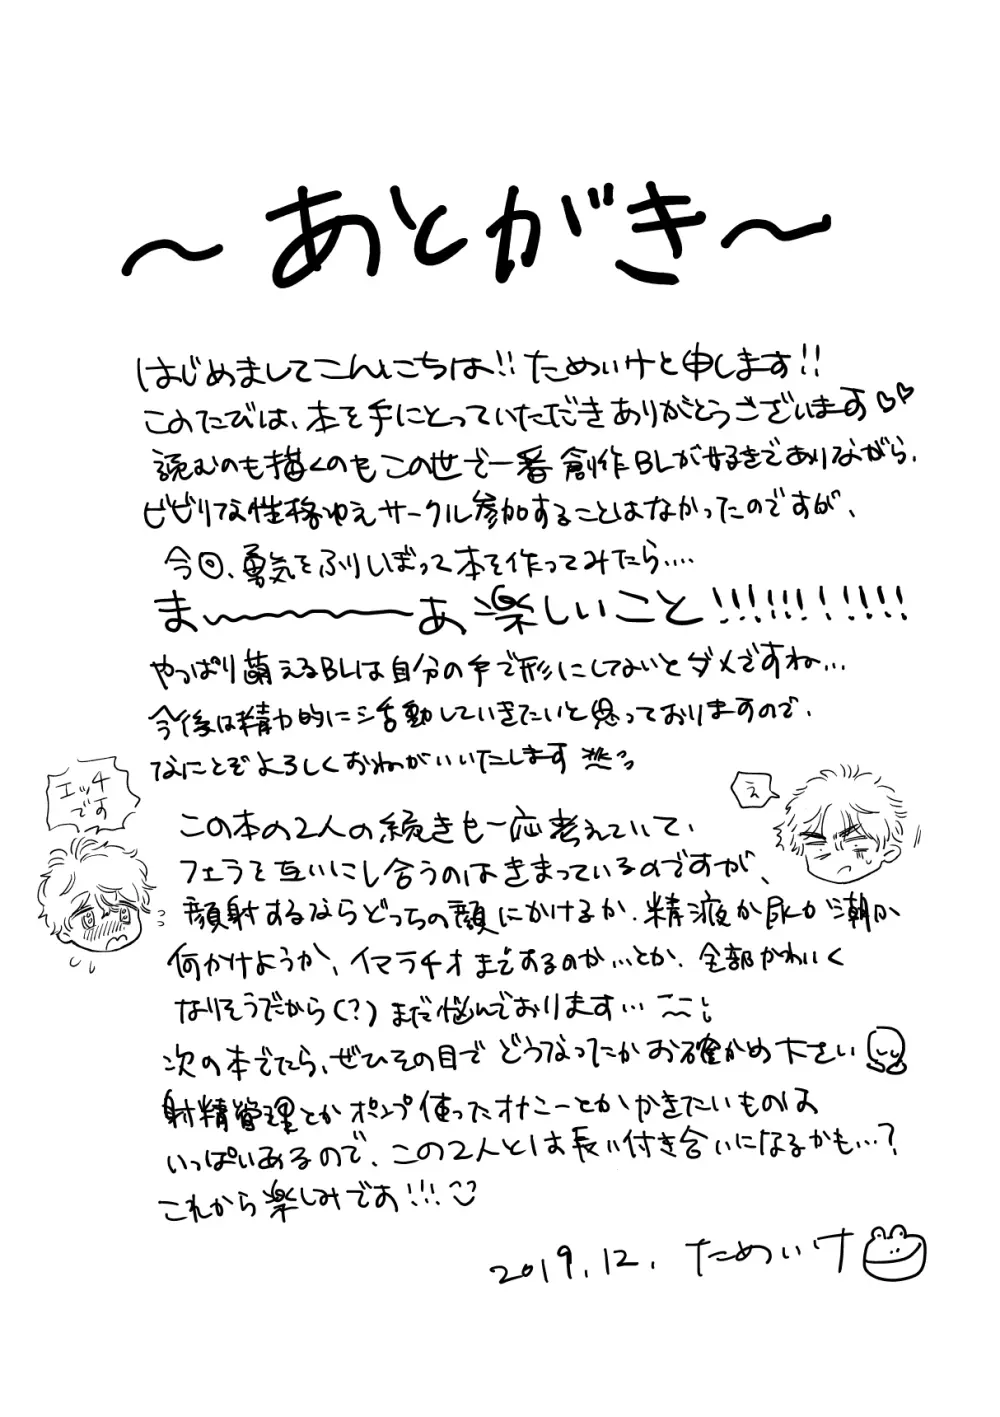 ～あとがき～
はじめましてこんにちは!!ためいけと申します!!
このたびは、本を手にとっていただきありがとうございます♡♡
読むのも描くのもこの世で一番創作BLが好きでありながら、
ビビりな性格ゆえサークル参加することはなかったのですが、
今回、勇気をふりしぼって本を作ってみたら….
ま〜〜〜〜あ楽しいこと!!!!!!!!!!!
やっぱり萌えるBLは自分の手で形にしてないとダメですね…
今後は精力的に活動していきたいと思っておりますので、
なにとぞよろしくおねがいいたします
エッチ
です
え
この本の2人の続きも一応考えていて、
フェラを互いにし合うのはきまっているのですが、
顔射するならどっちの顔にかけるか、精液か尿か潮か
何かけようか、イマラチオまでするのか…とか、全部かわいく
なりそうだから(?)まだ悩んでおります…
次の本でたら、ぜひその目でどうなったかお確かめ下さい
射精管理とかポンプ使ったオナニーとかかきたいものは
いっぱいあるので、この2人とは長い付き合いになるかも…?
これから楽しみです!!!
2019.12. ためいけ